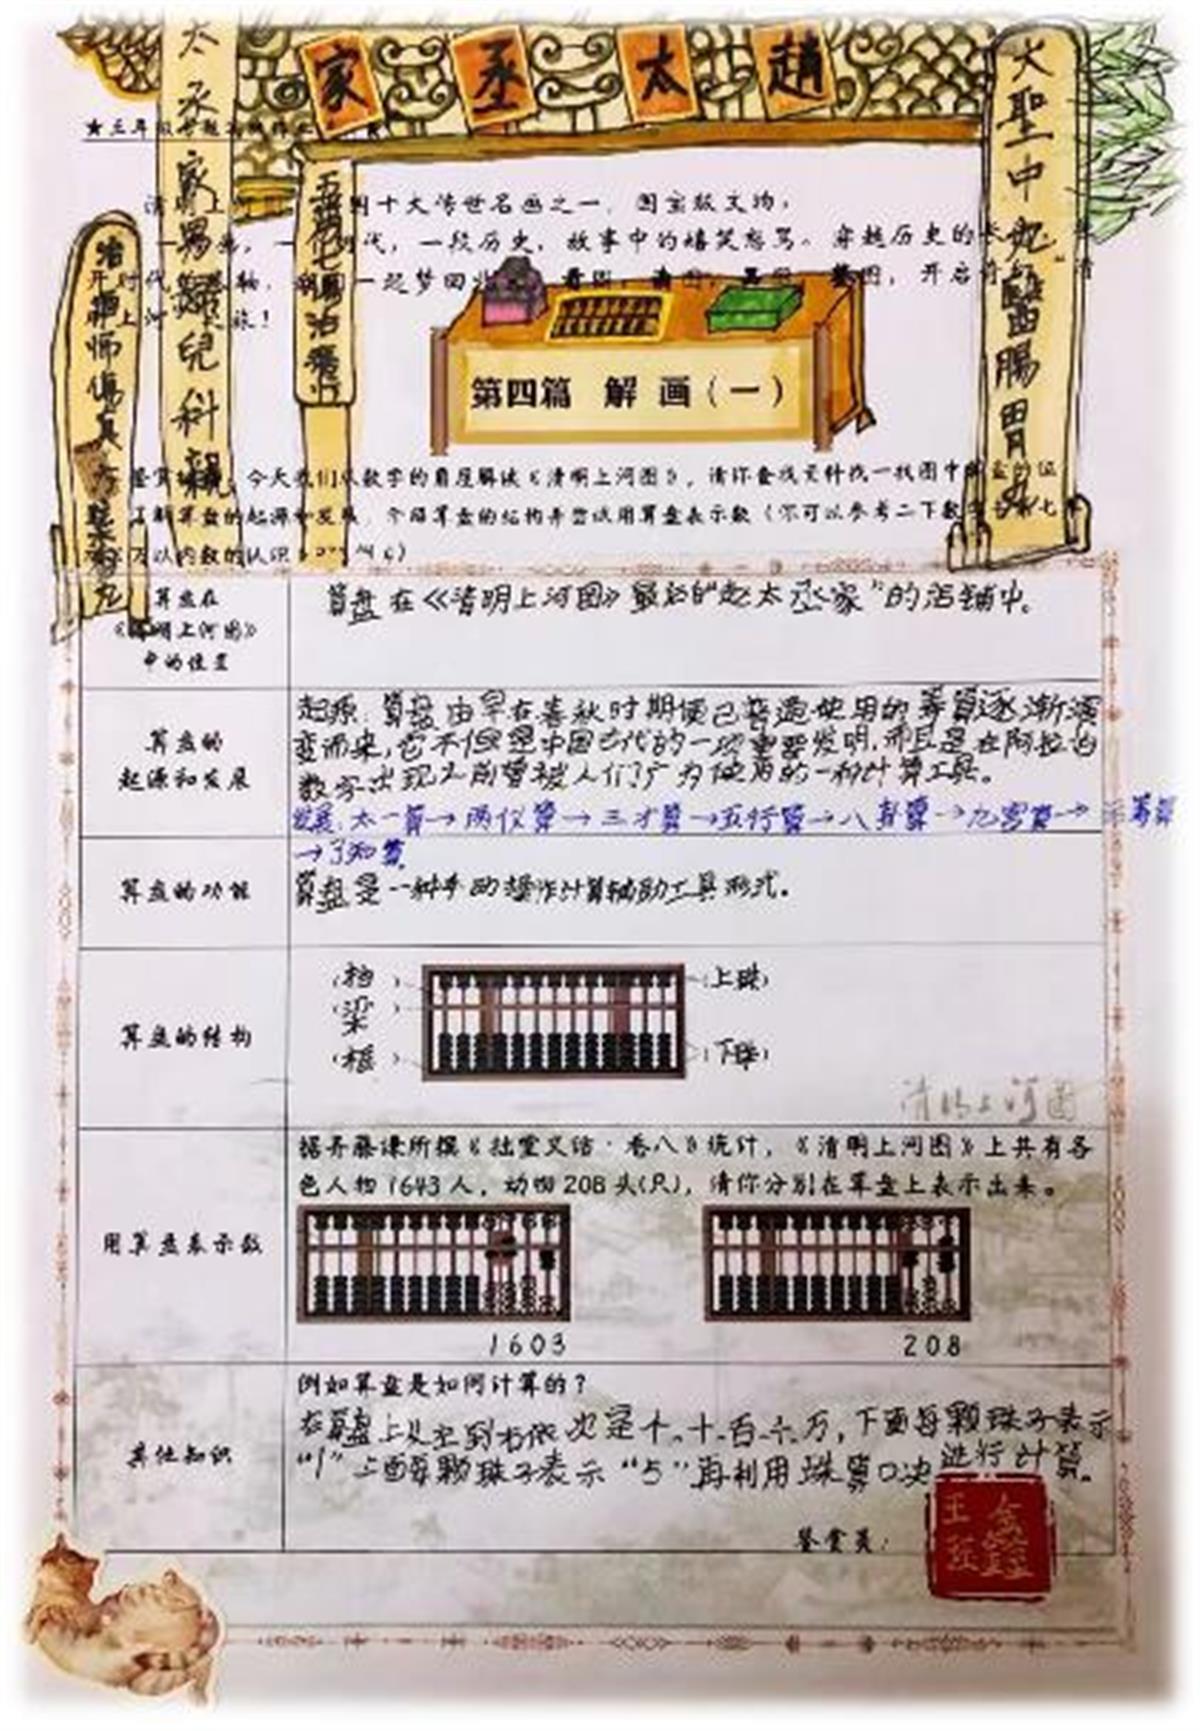 家 丞 太 趙
太丞家男婦兒科
大聖中丸醫腸胃丸
五勞七傷
明十大传世名画之一，国宝级文物，
一段历史，故事中的嬉笑怒骂。穿越历史的长
一起梦回
图，开启
第四篇 解 画（一）
今天我们从数学的角度解读《清明上河图》，请你查找资料找一找图中算盘的位
了解算盘的起源和发展，介绍算盘的结构并尝试用算盘表示数（你可以参考二下数学
万以内数的认识
算盘在
《清明上河图》
中的位置
算盘在《清明上河图》最后的"赵太丞家"的店铺中。
算盘的
起源和发展
起源：算盘由早在春秋时期便已普遍使用的筹算逐渐演
变而来，它不但是中国古代的一项重要发明，而且是在阿拉伯
数字出现之前曾被人们广为使用的一种计算工具。
发展：太一算→两仪算→三才算→五行算→八卦算→九宫算→
→了知算。
算盘的功能
算盘是一种手动操作计算辅助工具形式。
算盘的结构
（档）
（梁）
（框）
（上珠）
（下珠）
清明上河图
用算盘表示数
据齐藤谦所撰《拙堂文话·卷八》统计，《清明上河图》上共有各
色人物1643人，动物208头(只)，请你分别在算盘上表示出来。
1603
208
其他知识
例如算盘是如何计算的？
在算盘上从左到右依次是个、十、百、千、万，下面每颗珠子表示
"1"上面每颗珠子表示"5"再利用珠算口决进行计算。
鉴赏员：